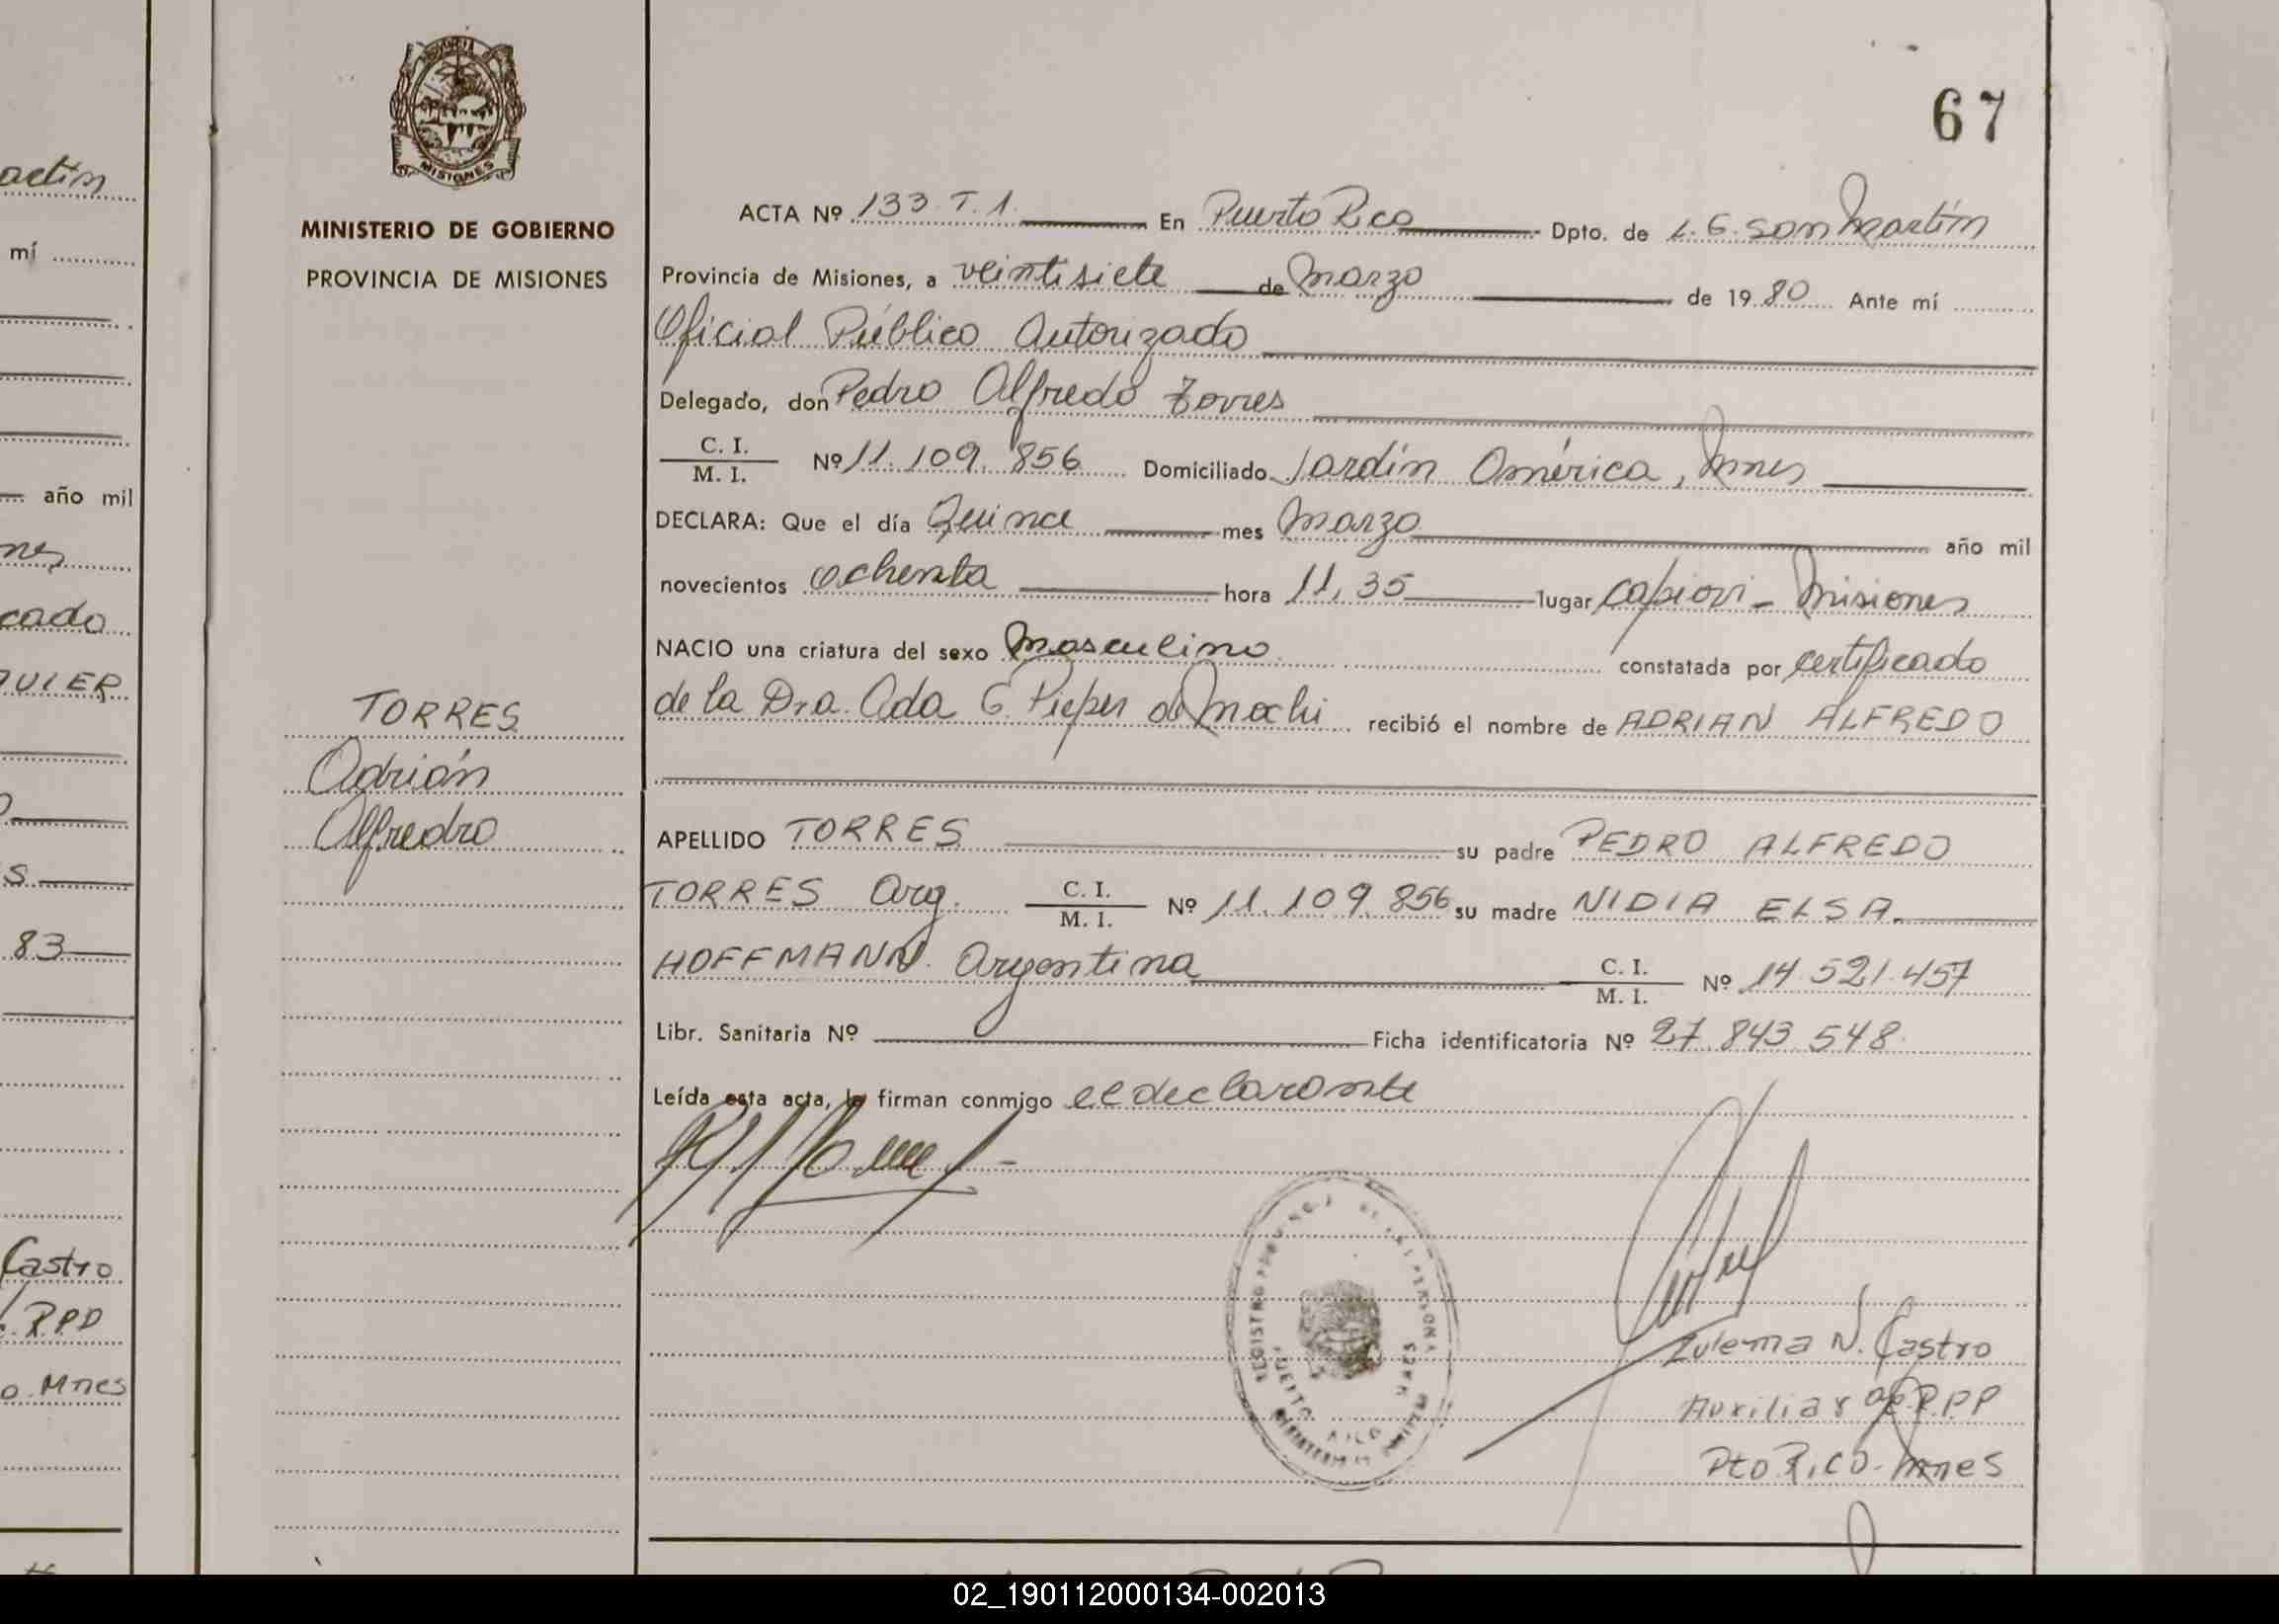 actín
mí
año mil
nes
cado
QUIER
S
83
Castro
R.P.P
o. Mnes
MISIONES
MINISTERIO DE GOBIERNO
PROVINCIA DE MISIONES
TORRES
Adrián
Alfredro
67
ACTA Nº 133 T. 1. En Puerto Rico Dpto. de L. G. San Martín
Provincia de Misiones, a veintisiete de marzo de 1980 Ante mí
Oficial Público Autorizado
Delegado, don Pedro Alfredo Torres
C. I.
M. I. Nº 11.109.856 Domiciliado Jardín América, Mnes
DECLARA: Que el día Quince mes Marzo año mil
novecientos ochenta hora 11,35 lugar Capiovi - Misiones
NACIO una criatura del sexo Masculino constatada por certificado
de la Dra. Ada G. Pieper de Mochi recibió el nombre de ADRIAN ALFREDO
APELLIDO TORRES su padre PEDRO ALFREDO
TORRES Arg. C. I.
M. I. Nº 11.109.856 su madre NIDIA ELSA
HOFFMANN. Argentina C. I.
M. I. Nº 14.521.457
Libr. Sanitaria Nº Ficha identificatoria Nº 27.843.548
Leída esta acta, la firman conmigo el declarante
REGISTRO PERSONAS
PUERTO RICO
Zulema N. Castro
Auxiliar de R.P.P
Pto Rico. Mnes
02_190112000134-002013